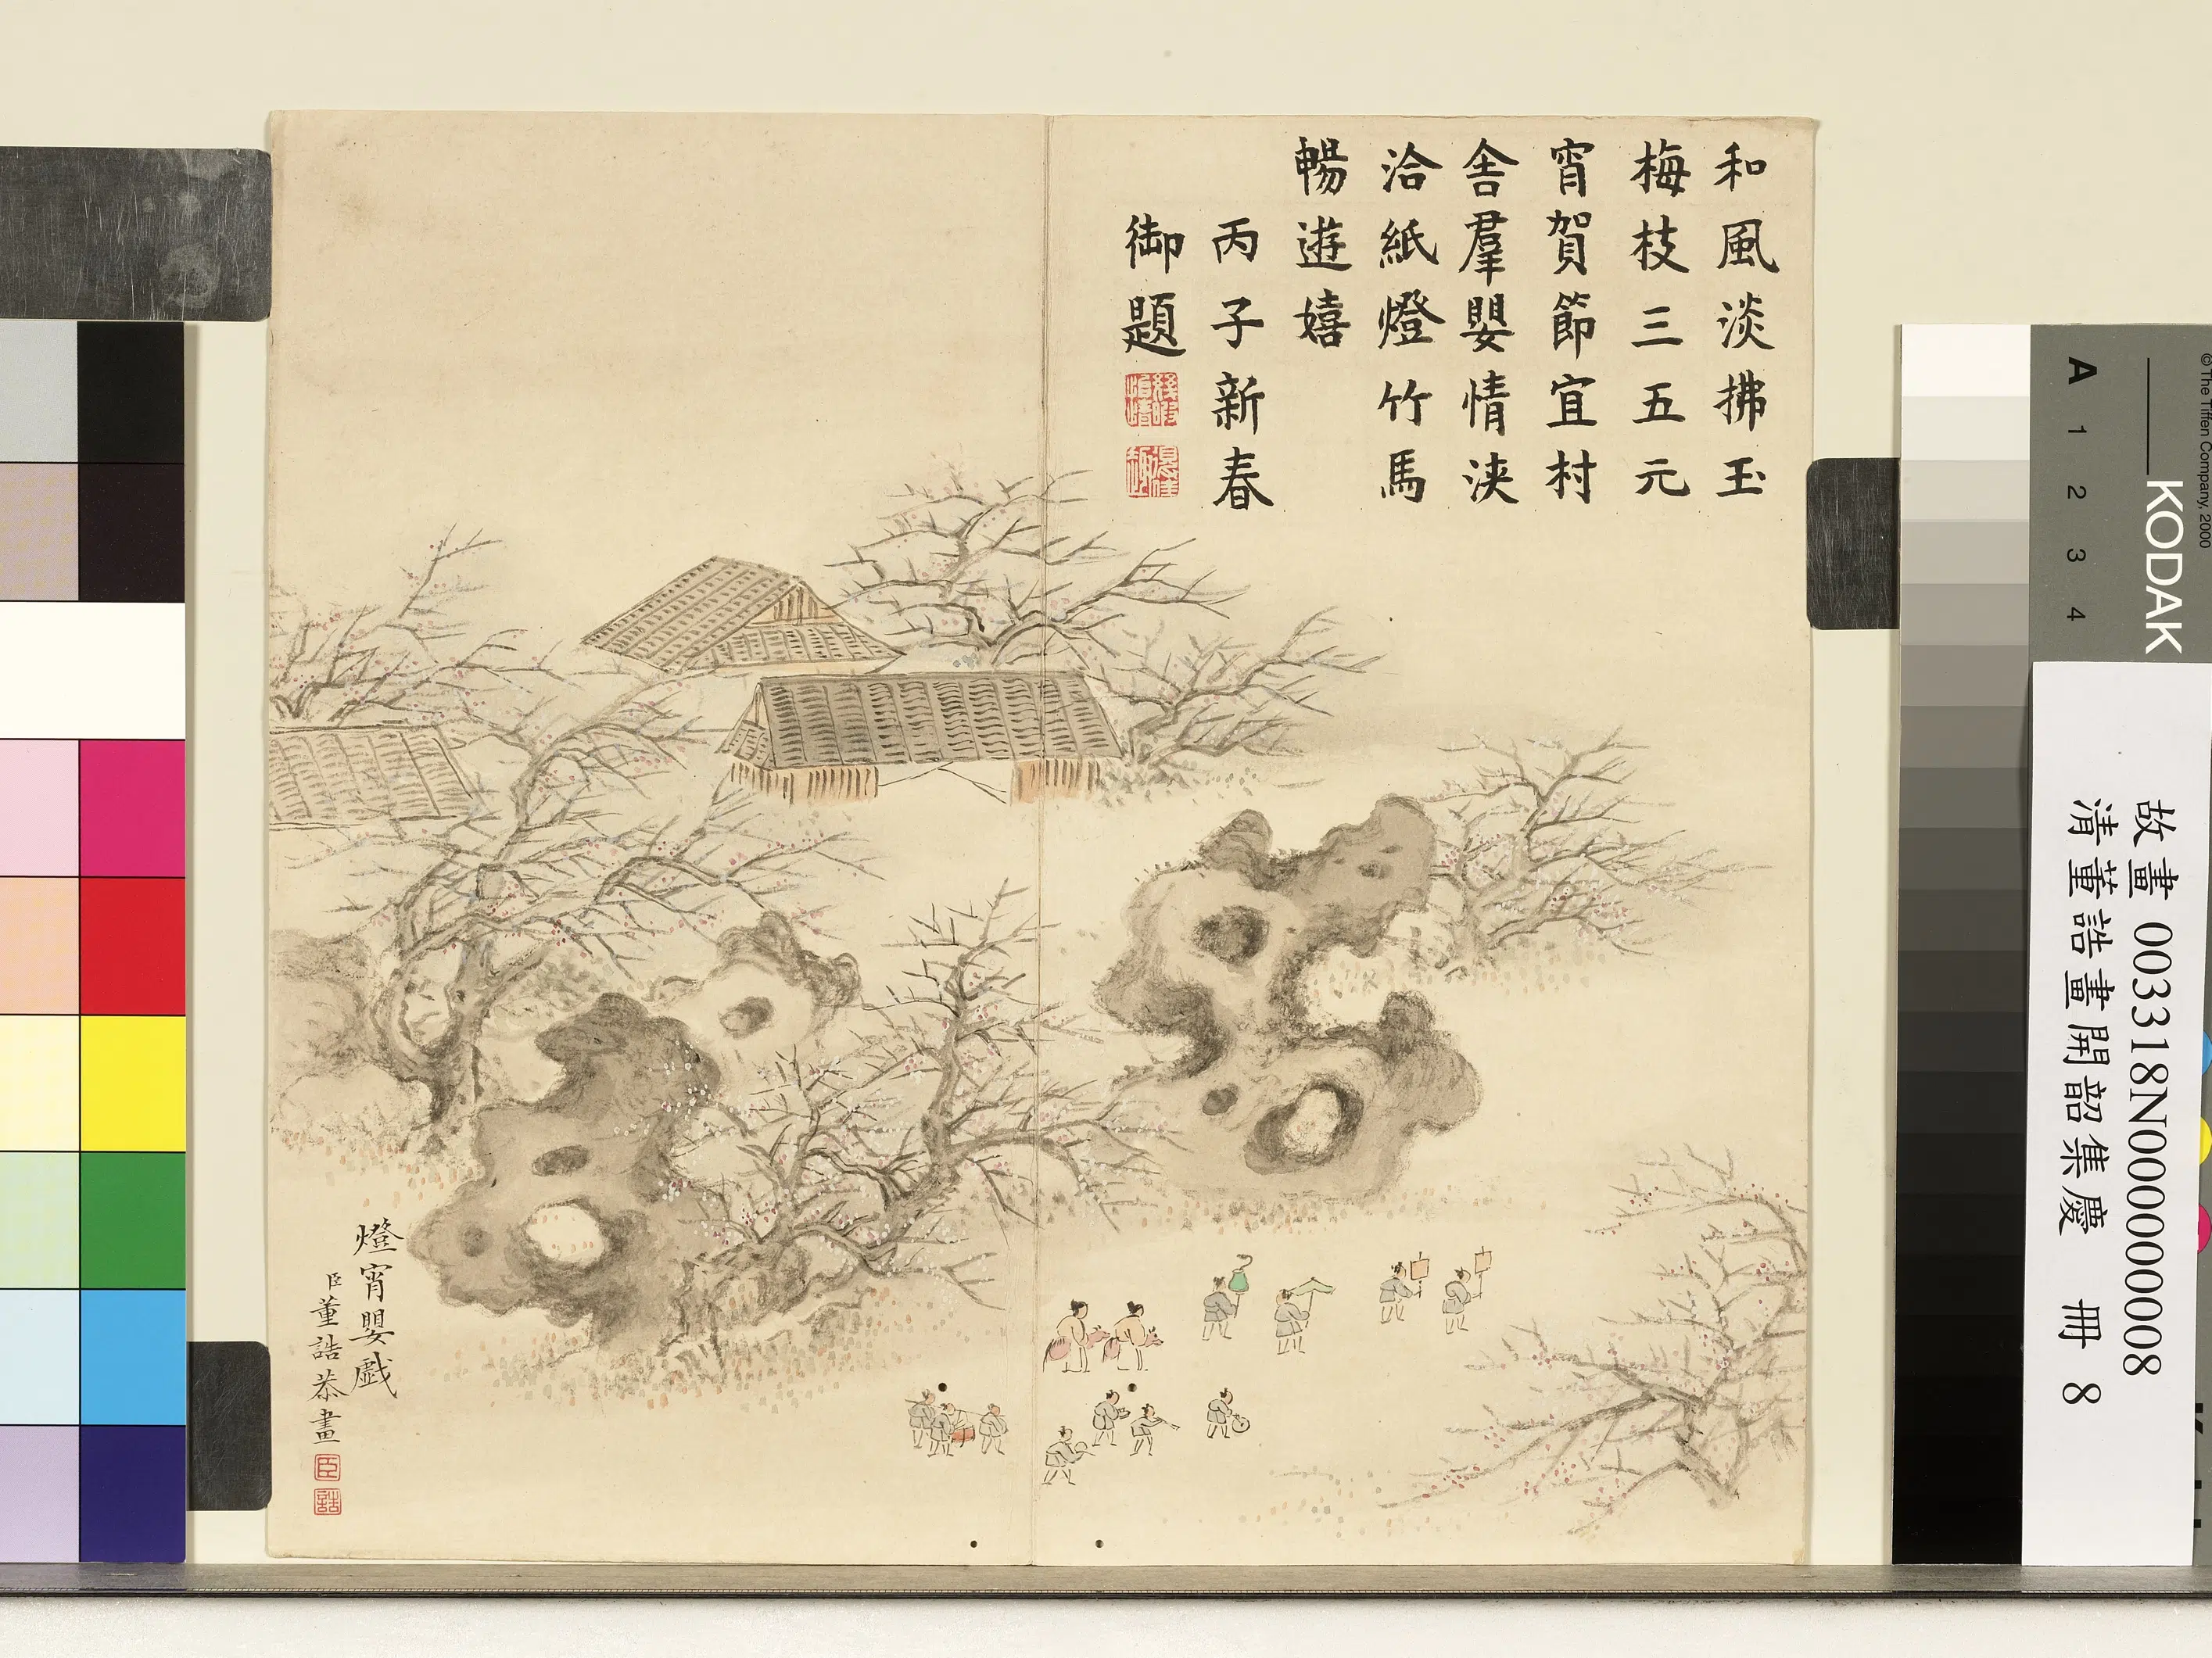 和風淡拂玉
梅枝三五元
宵賀節宜村
舍羣嬰情浹
洽紙燈竹馬
暢遊嬉
丙子新春
御題
燈宵嬰戲
臣董誥恭畫
臣
誥
© The Tiffen Company, 2000
KODAK
A 1 2 3 4
故畫 003318N000000008
清董誥畫開韶集慶 冊 8